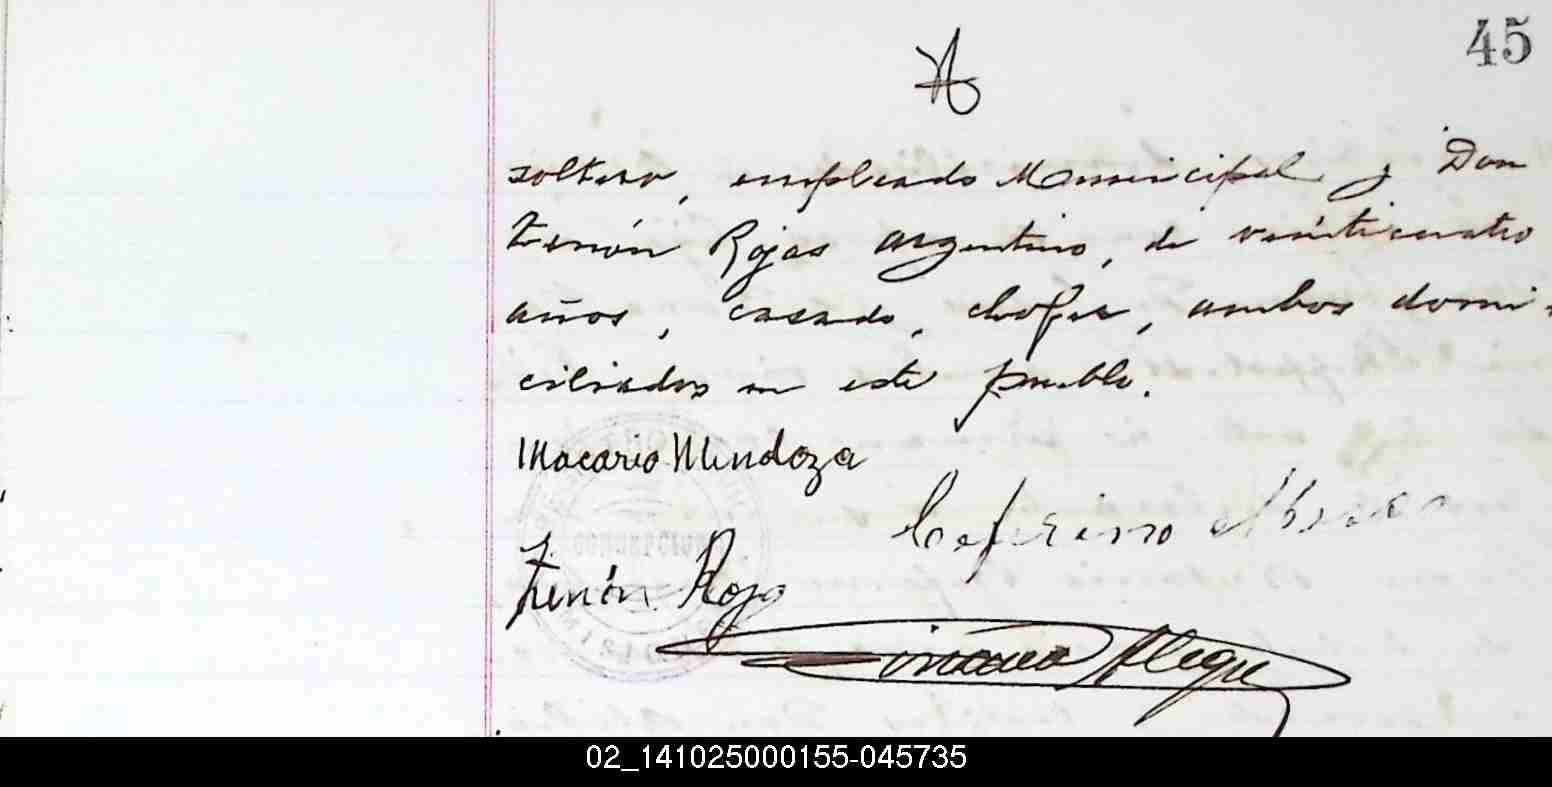 45
soltero, empleado Municipal y Don
Zenón Rojas argentino, de veinticuatro
años, casado, chofer, ambos domi-
ciliados en este pueblo.
Macario Mendoza
Ceferino
Zenón Rojas
Alegre
02_141025000155-045735